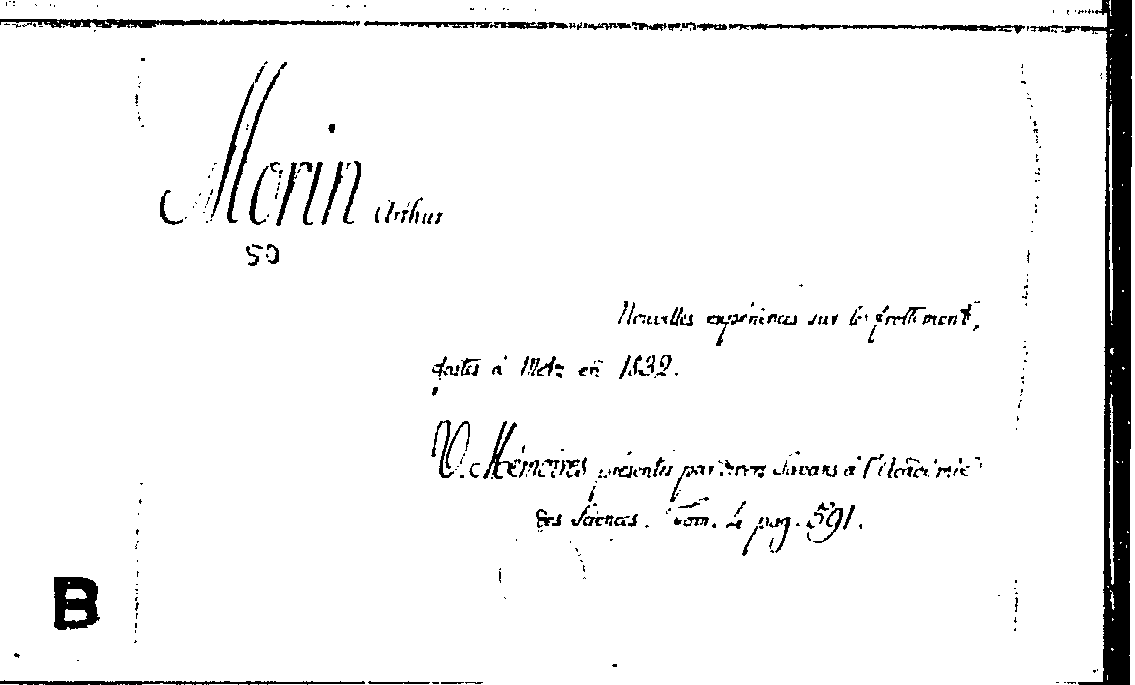 Morin Arthur
Nouvelles expériences sur le frottement,
faites à Metz en 1832.
V. Mémoires présentés par divers Savans à l'Académie
des Sciences. Tom. 4 pag. 591.
B